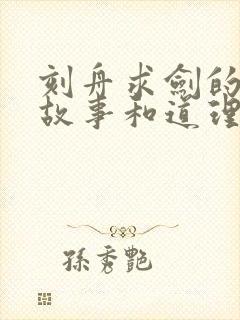 刻舟求劍的
故事和道理
孫秀艷